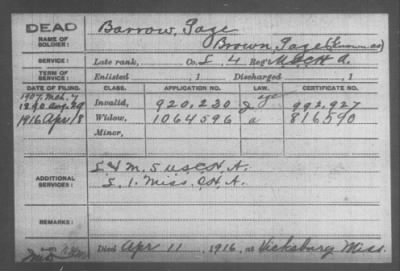 DEAD
NAME OF SOLDIER:
Barrow, Page
Brown, Page (Known as)
SERVICE:
Late rank, Co. L, 4 Reg't U.S.C.H.A.
TERM OF SERVICE:
Enlisted , 1 Discharged , 1
DATE OF FILING. CLASS. APPLICATION NO. LAW. CERTIFICATE NO.
1907 Mch. 7
1890 Aug. 29 Invalid, 920,230 992,927
1916 Apr 18 Widow, 1064596 a 816590
Minor,
ADDITIONAL SERVICES:
L & M. 5 U.S.C.H.A.
L. 1. Miss. C.H.A.
REMARKS:
Died Apr 11, 1916, at Vicksburg Miss.